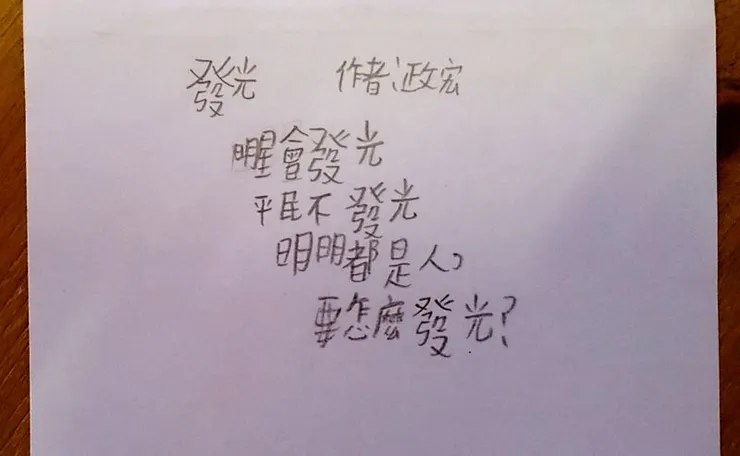 發光 作者:政宏
明星會發光
平民不發光
明明都是人,
要怎麼發光?